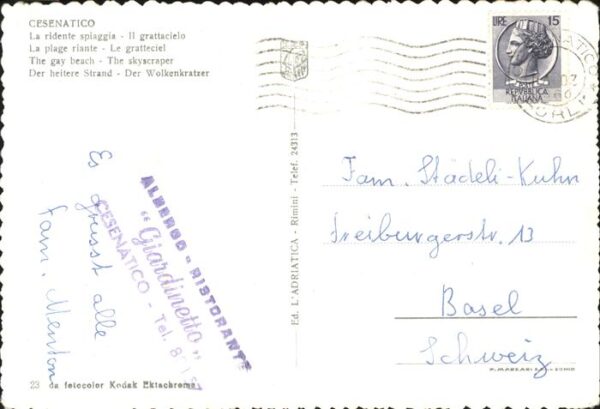 CESENATICO
La ridente spiaggia - Il grattacielo
La plage riante - Le gratteciel
The gay beach - The skyscraper
Der heitere Strand - Der Wolkenkratzer
LIRE 15
POSTE
REPVBBLICA
ITALIANA
Es grüsst alle
Fam. Menton
ALBERGO - RISTORANTE
"Giardinetto"
CESENATICO - Tel.
Ed. L'ADRIATICA - Rimini - Telef. 24313
Fam. Städeli-Kuhn
Freiburgerstr. 13
Basel
Schweiz
23 da fotocolor Kodak Ektachrome